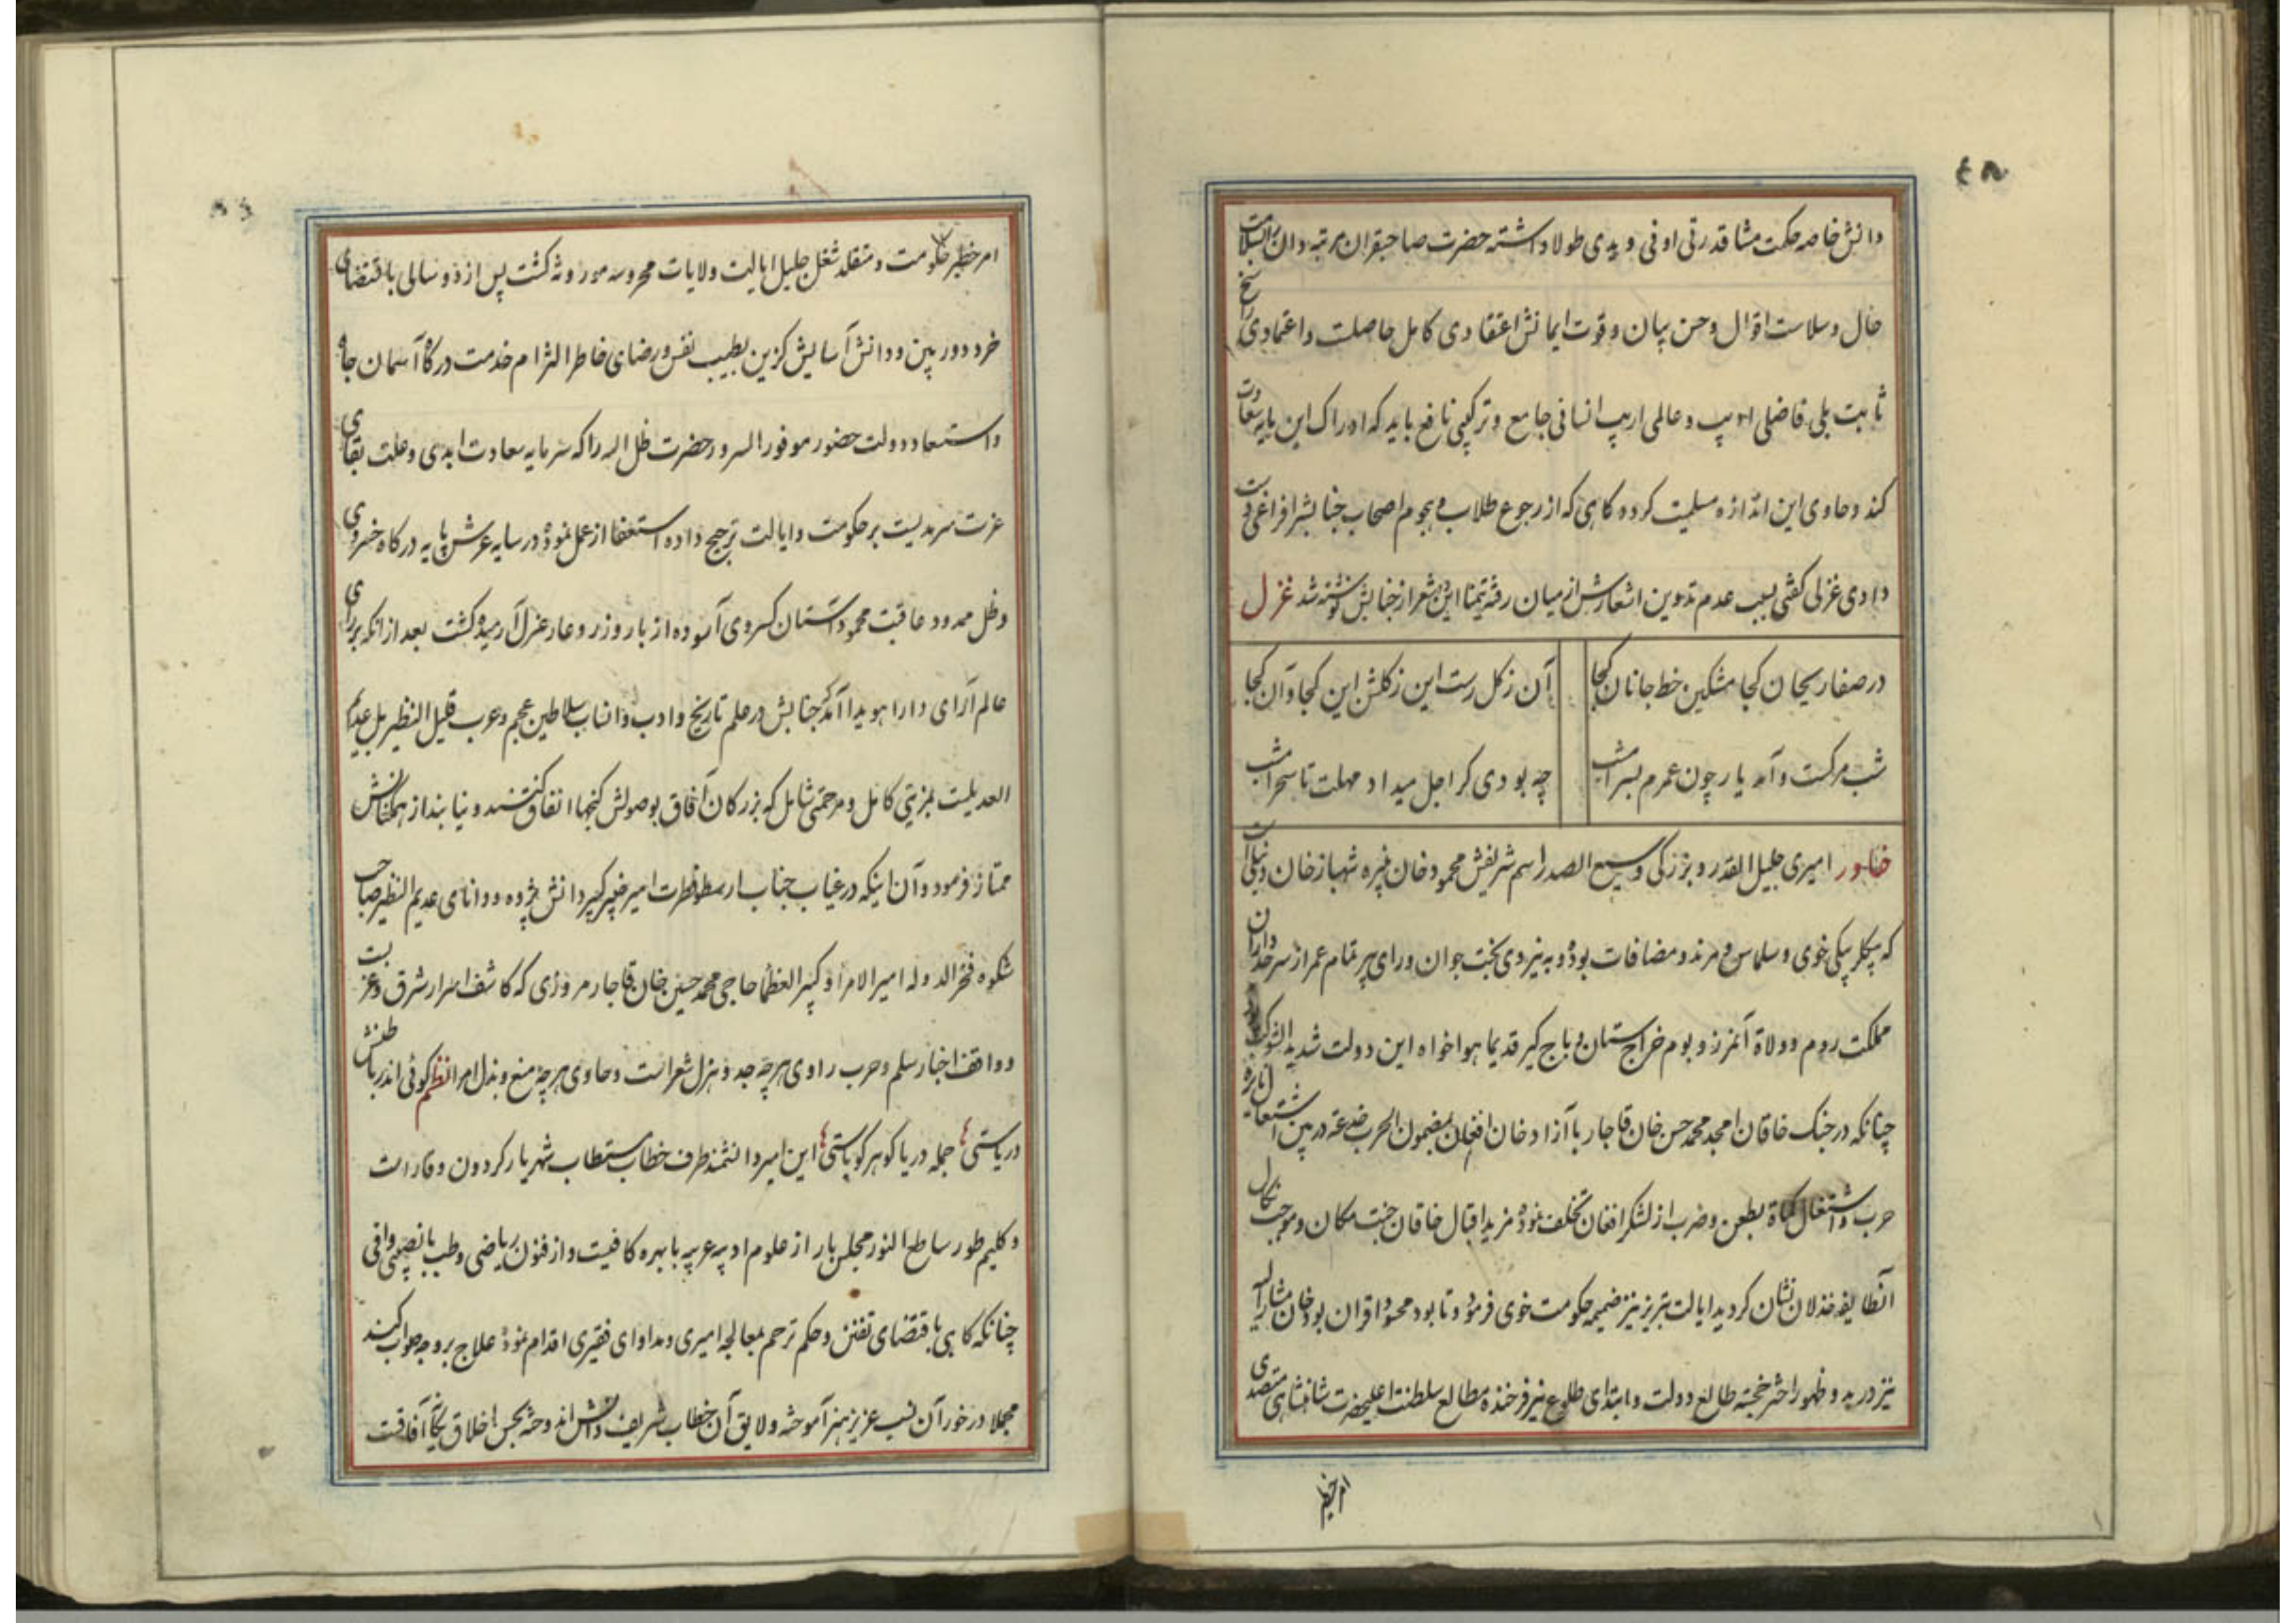 دانش خاصه حکمت مشا قدرتی اوفی و یدی طولا داشته حضرت صاحبقران مرتبه دان را بسلامت
حال و سلاست اقوال و حسن بیان و قوت ایمانش اعتقادی کامل حاصلت و اعتمادی راسخ
ثابت بلی فاضلی ادیب و عالمی اریب انسانی جامع و ترکیبی نافع باید که ادراک این پایه سعادت
کند و حاوی این اندازه مسلمیت کردد کاهی که از رجوع طلاب و هجوم اصحاب جنابش را فراغی دست
دادی غزلی کفتی بسبب عدم تدوین اشعارش از میان رفته تیمنا این شعر از جنابش نوشته شد غزل
در صفا ریحان کجا مشکین خط جانان کجا
آن ز کل رست این ز کلشن این کجا و آن کجا
شب مرکست و آمد یار چون عمرم بسر امشب
چه بودی کر اجل میداد مهلت تا سحر امشب
خاور امیری جلیل القدر و بزرکی وسیع الصدر اسم شریفش محمود خان نبیره شهباز خان دنبلی است
که بیکلربیکی خوی و سلماس و مرند و مضافات بوده و به نیروی بخت جوان و رای پیر تمام عمر از سرحدداران
مملکت روم و ولاة آنمرز و بوم خراج ستان و باج کیر قدیما هواخواه این دولت شدید الشوکت
چنانکه در جنک خاقان امجد محمد حسن خان قاجار با آزاد خان افغان بمضمون الحرب خدعة در بین اشتعال نایره
حرب و اشتغال کماة بطعن و ضرب از لشکر افغان تخلف نموده مزید اقبال خاقان جنت مکان و موجب نکال
آنطایفه خذلان نشان کردید ایالت تبریز نیز ضمیمه حکومت خوی فرمود و تا بود محسود اقران بود خان مشار الیه
نیز در بدو ظهور اختر خجسته طالع دولت و ابتدای طلوع نیر فرخنده مطالع سلطنت اعلیحضرت شاهنشاهی متصدی
امر خطیر
امر خطیر حکومت و متقلد شغل جلیل ایالت ولایات محروسه موروثه کشت پس از دو سالی باقتضای
خرد دور بین و دانش آسایش کزین بطیب نفس و رضای خاطر التزام خدمت درکاه آسمان جاه
و استسعاد دولت حضور موفور السرور حضرت ظل اله را که سرمایه سعادت ابدی و علت بقای
عزت سرمدیست بر حکومت و ایالت ترجیح داده استعفا از عمل نموده در سایه عرش پایه درکاه خسروی
و ظل ممدود عاقبت محمود آستان کسروی آسوده از بار وزر و عار عزل آرمیده کشت بعد از انکه بر رای
عالم آرای دارا هویدا آمد که جنابش در علم تاریخ و ادب و انساب سلاطین عجم و عرب قلیل النظیر بل عدیم
العدیلست بمزیتی کامل و مرحمتی شامل که بزرکان آفاق بوصولش کنجها انفاق کنند و نیابند از همکنانش
ممتاز فرمود و آن اینکه در غیاب جناب ارسطو فطرت امیر خبیر کبیر دانش پژوه و دانای عدیم النظیر صاحب
شکوه فخر الدوله امیر الامرا و کبیر العظما حاجی محمد حسین خان قاجار مروزی که کاشف اسرار شرق و غربست
و واقف اخبار سلم و حرب راوی هر چه جد و هزل شعراست و حاوی هر چه منع و بذل امرا نظم کوئی اندر باطنش
دریاستی جمله دریا کوهر کویاستی این امیر دانشمند طرف خطاب مستطاب شهریار کردون وقار است
و کلیم طور ساطع النور مجلس بار از علوم ادبیه عربیه با بهره کافیست و از فنون ریاضی و طب با نصیبی وافی
چنانکه کاهی باقتضای تفنن و حکم ترحم بمعالجه امیری و مداوای فقیری اقدام نموده علاج بر وجه صواب کند
مجملا در خور آن نسب عزیز هنر آموخته و لایق آن خطاب شریف دانش اندوخته بحسن اخلاق یکانه آفاقست